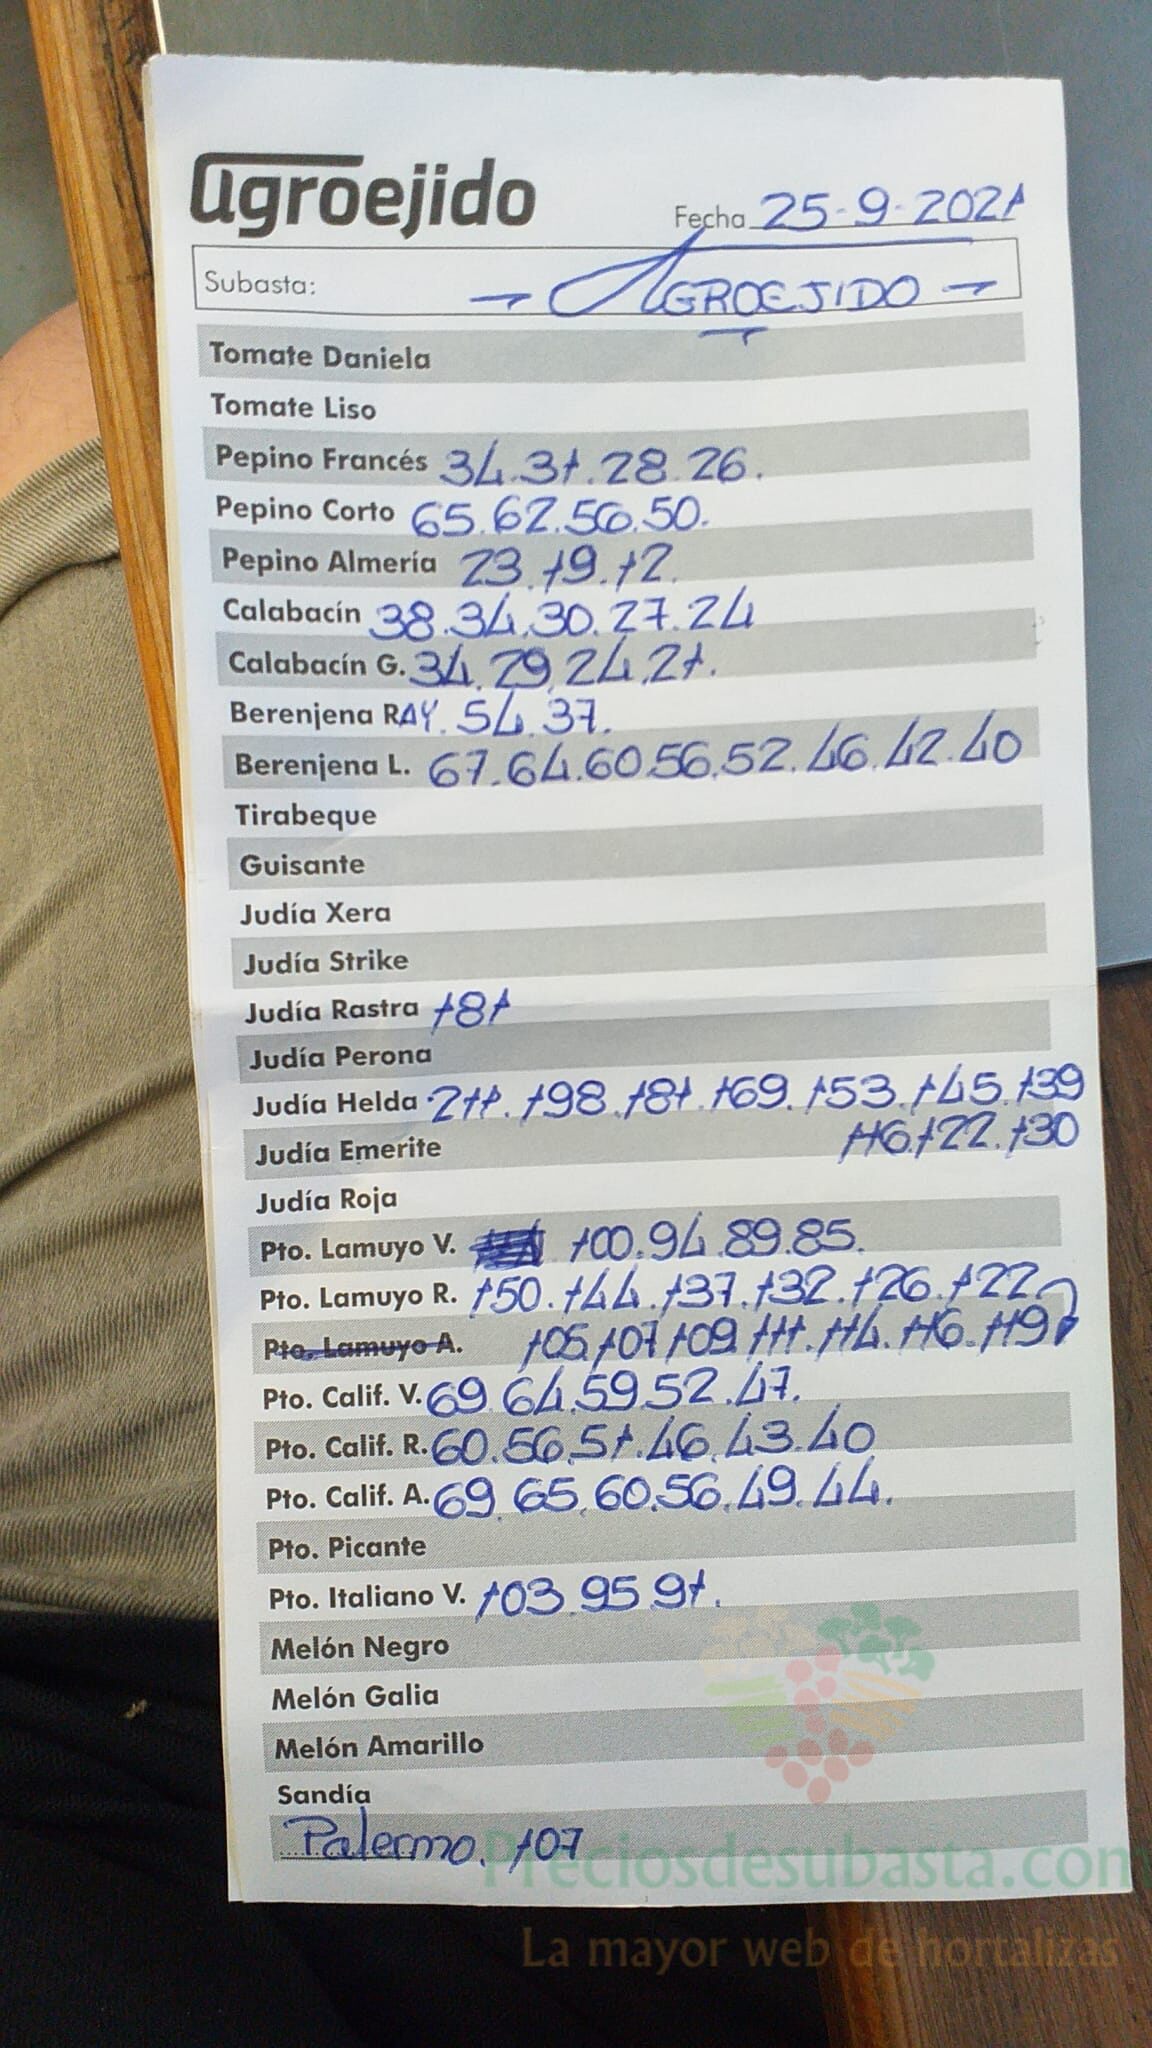 agroejido
Fecha 25-9-2021
Subasta: - AGROEJIDO -
Tomate Daniela
Tomate Liso
Pepino Francés 34.31.28.26.
Pepino Corto 65.62.56.50.
Pepino Almería 23.19.12.
Calabacín 38.34.30.27.24
Calabacín G. 34.29.24.21.
Berenjena RAY. 54.37.
Berenjena L. 67.64.60.56.52.46.42.40
Tirabeque
Guisante
Judía Xera
Judía Strike
Judía Rastra 181
Judía Perona
Judía Helda 211.198.181.169.153.145.139
Judía Emerite 116.122.130
Judía Roja
Pto. Lamuyo V. 100.94.89.85.
Pto. Lamuyo R. 150.144.137.132.126.122
Pto. Lamuyo A. 105.107.109.111.114.116.119
Pto. Calif. V. 69.64.59.52.47.
Pto. Calif. R. 60.56.51.46.43.40
Pto. Calif. A. 69.65.60.56.49.44.
Pto. Picante
Pto. Italiano V. 103.95.91.
Melón Negro
Melón Galia
Melón Amarillo
Sandía
Palermo. 107
Preciosdesubasta.com
La mayor web de hortalizas